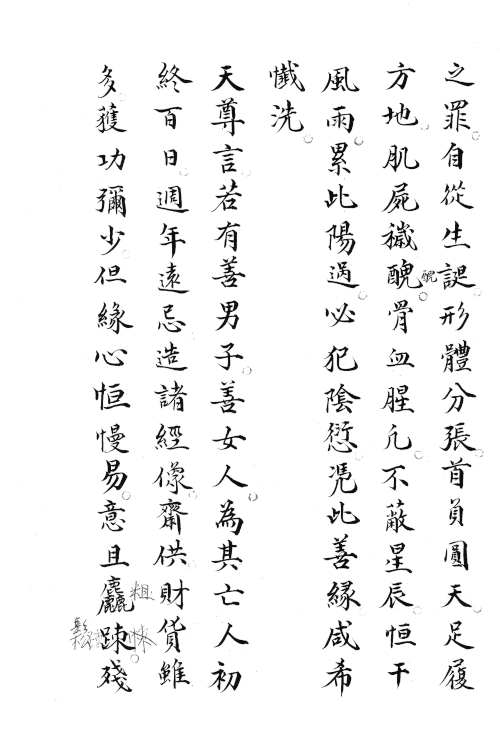 之罪自從生誕形體分張首員圓天足履
方地肌屍穢醜骨血腥凢不蔽星辰恒干
風雨累此陽過必犯陰愆凴此善緣咸希
懺洗
天尊言若有善男子善女人為其亡人初
終百日週年遠忌造諸經像齋供財貨雖
多獲功彌少但緣心恒慢易意且麤踈殘